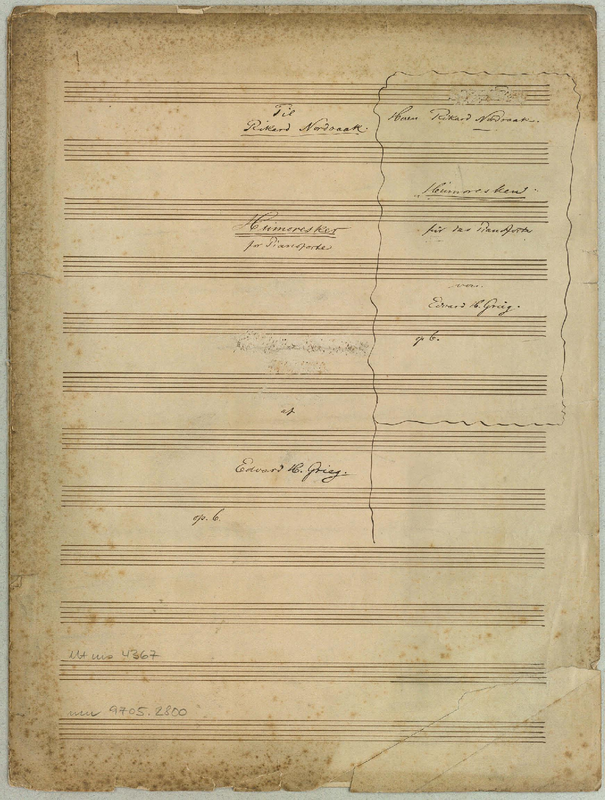 1
Til
Rikard Nordraak.
Humoresker
for Pianoforte
af
Edvard H. Grieg.
op. 6.
Herrn Rikard Nordraak.
Humoresken
für das Pianoforte
von
Edvard H. Grieg.
op 6.
Mus ms 4367
mu 9705.2800